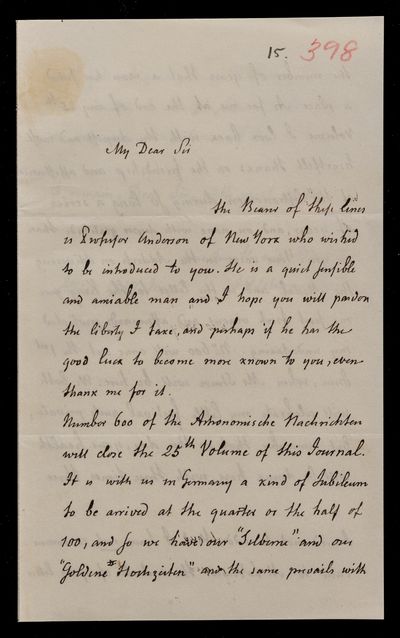 15. 398
My Dear Sir
the Bearer of these lines
is Professor Anderson of New York who wished
to be introduced to you. He is a quiet sensible
and amiable man and I hope you will pardon
the liberty I take, and perhaps if he has the
good luck to become more known to you, even
thank me for it.
Number 600 of the Astronomische Nachrichten
will close the 25th Volume of this Journal.
It is with us in Germany a kind of Jubileum
to be arrived at the quarter or the half of
100, and so we have our "Silberne" and our
"Goldene Hochzeiten" and the same prevails with